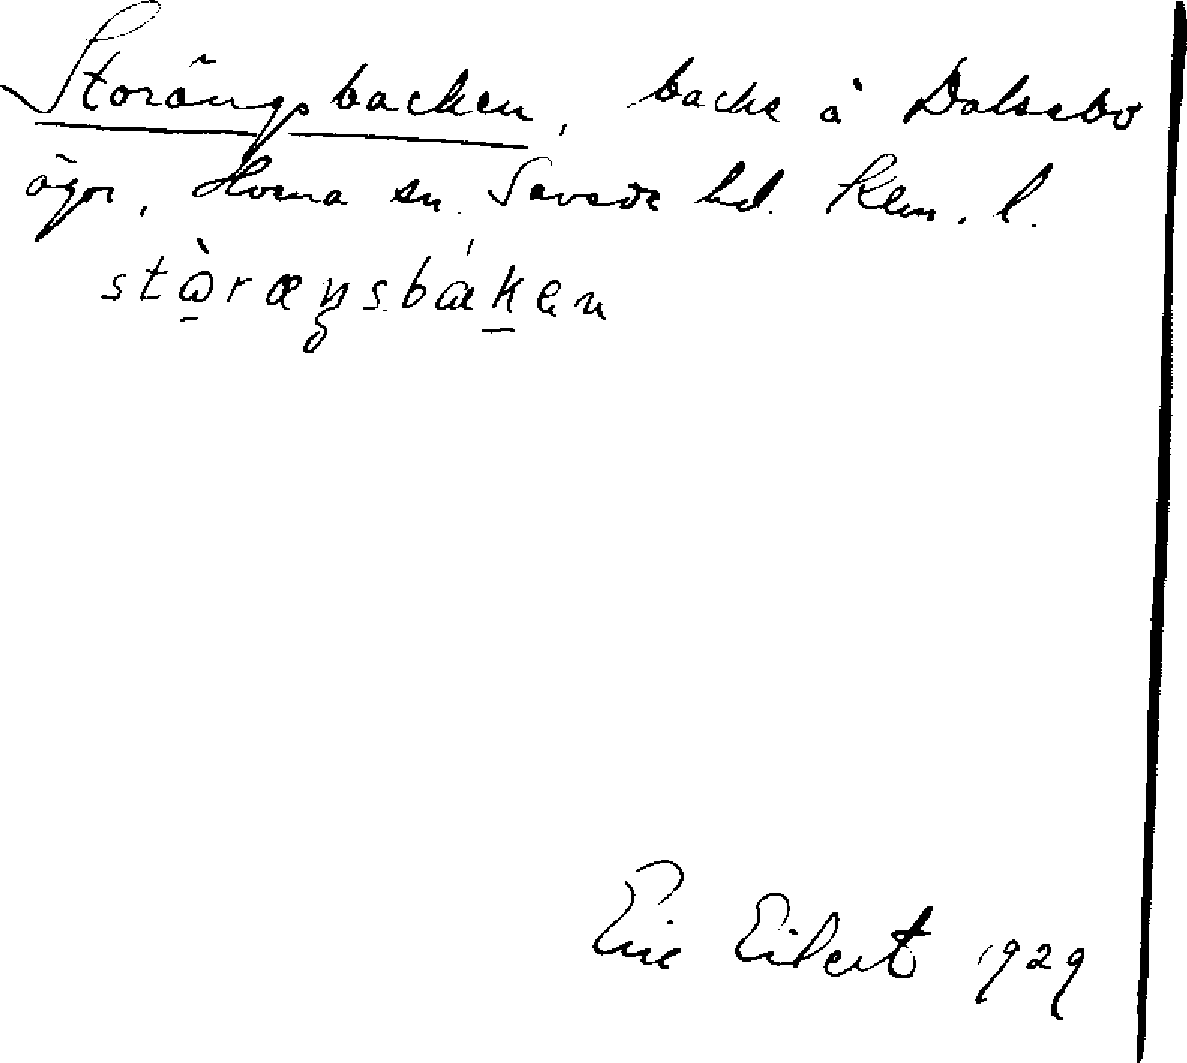 Storängsbacken, backe å Dalsebo
ägor, Hvena sn. Sevede hd. Klm. l.
stὼræŋsbáken
Eric Eilert 1929